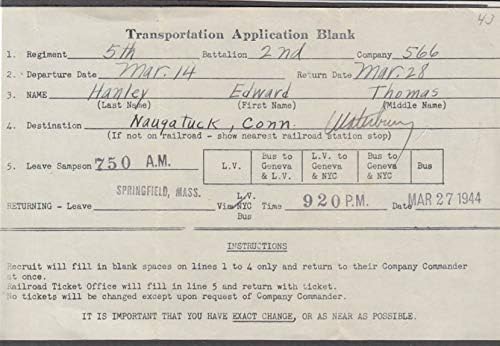 43
Transportation Application Blank
1. Regiment 5th Battalion 2nd Company 566
2. Departure Date Mar. 14 Return Date Mar. 28
3. NAME Hanley Edward Thomas
(Last Name) (First Name) (Middle Name)
4. Destination Naugatuck, Conn. Waterbury
(If not on railroad - show nearest railroad station stop)
5. Leave Sampson 750 A.M. L.V. Bus to Geneva & L.V. L.V. to Geneva & NYC Bus to Geneva & NYC Bus
SPRINGFIELD, MASS.
RETURNING - Leave Via L.V. NYC Bus Time 920 P.M. Date MAR 27 1944
INSTRUCTIONS
Recruit will fill in blank spaces on lines 1 to 4 only and return to their Company Commander
at once.
Railroad Ticket Office will fill in line 5 and return with ticket.
No tickets will be changed except upon request of Company Commander.
IT IS IMPORTANT THAT YOU HAVE EXACT CHANGE, OR AS NEAR AS POSSIBLE.